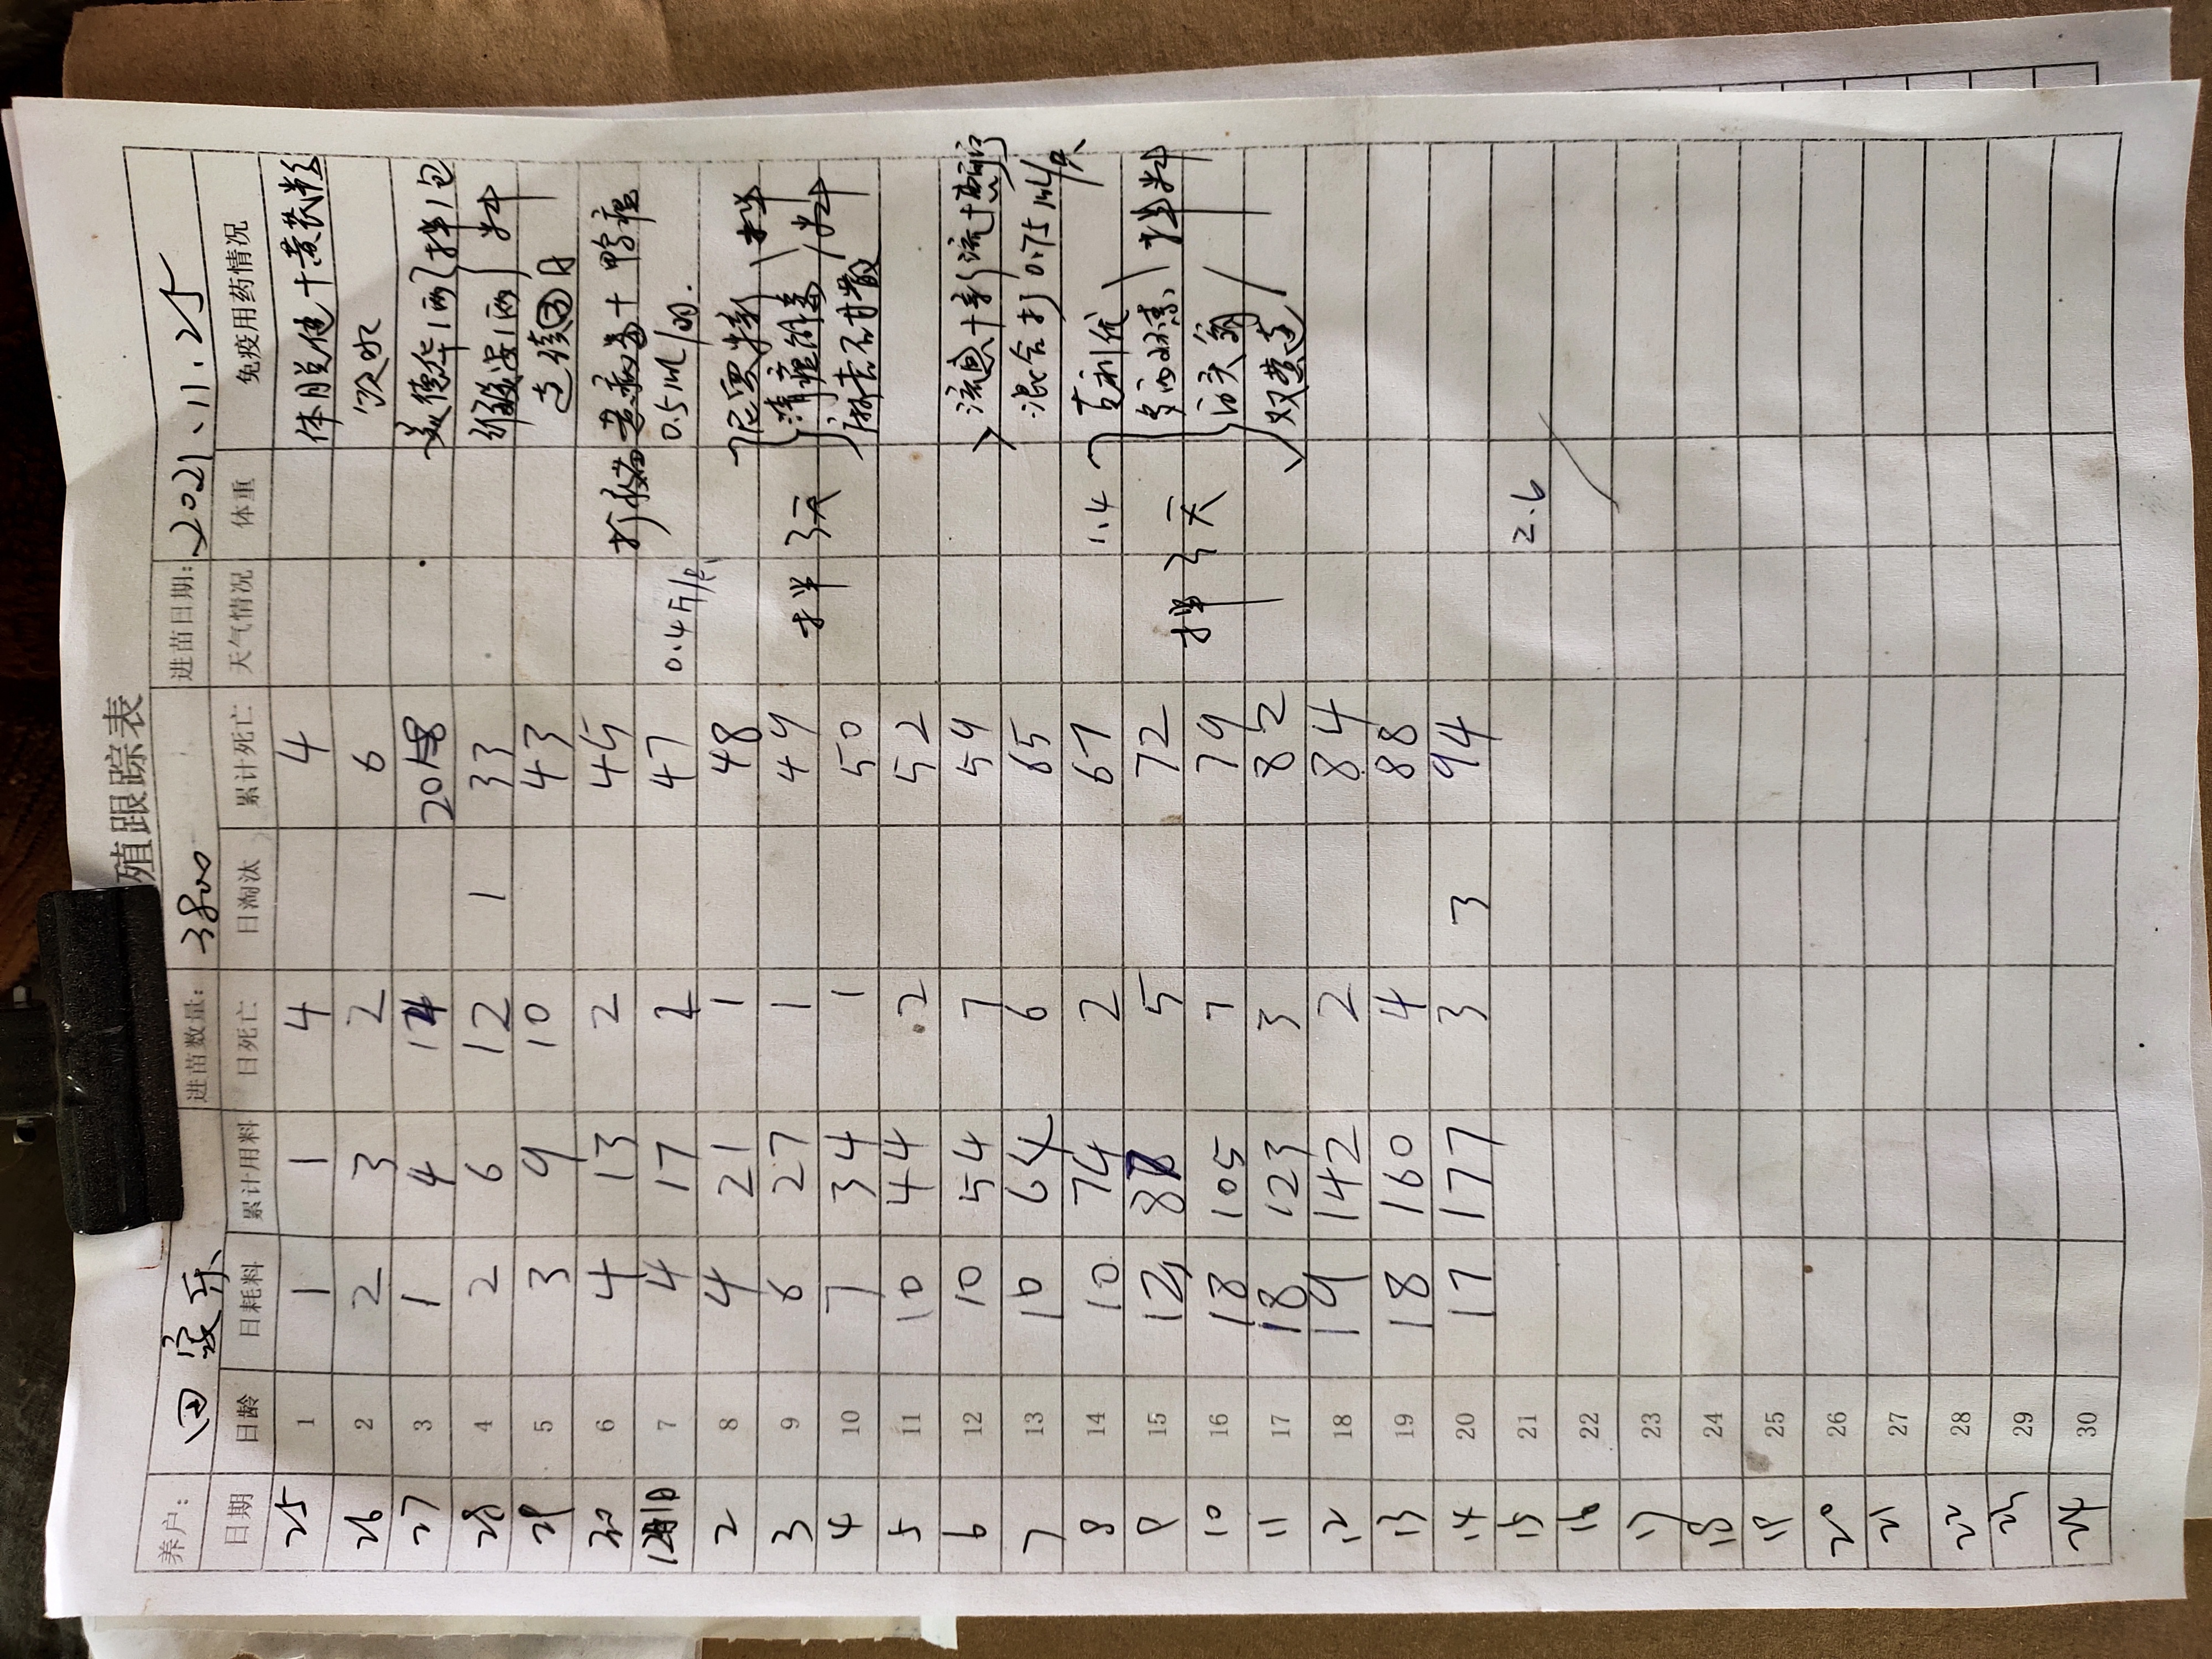 殖跟踪表
养户: 田家乐 进苗数量: 3800 进苗日期: 2021.11.25
日期 日龄 日耗料 累计用料 日死亡 日淘汰 累计死亡 天气情况 体重 免疫用药情况
25 1 1 1 4 4 体肝兑健+黄芪粒
26 2 2 3 2 6 饮水
27 3 1 4 14 2018 拌1包
28 4 2 6 12 1 33 料
29 5 3 9 10 43 连续四日
30 6 4 13 2 45 打疫苗 +鸭瘟
12月1日 7 4 17 2 47 0.4斤/只 0.5mL/羽.
2 8 4 21 1 48 拌
3 9 6 27 1 49 拌3天
4 10 7 34 1 50 麻杏石甘散 料
5 11 10 44 2 52
6 12 10 54 7 59 流感+
7 13 10 64 6 65 混合打0.75mL/只
8 14 10 74 2 67 1.4
9 15 12 87 5 72 多西环素 拌料
10 16 18 105 7 79 拌3天 白头翁
11 17 18 123 3 82 双黄连
12 18 19 142 2 84
13 19 18 160 4 88
14 20 17 177 3 3 94
15 21 2.6
16 22
17 23
18 24
19 25
20 26
21 27
22 28
23 29
24 30